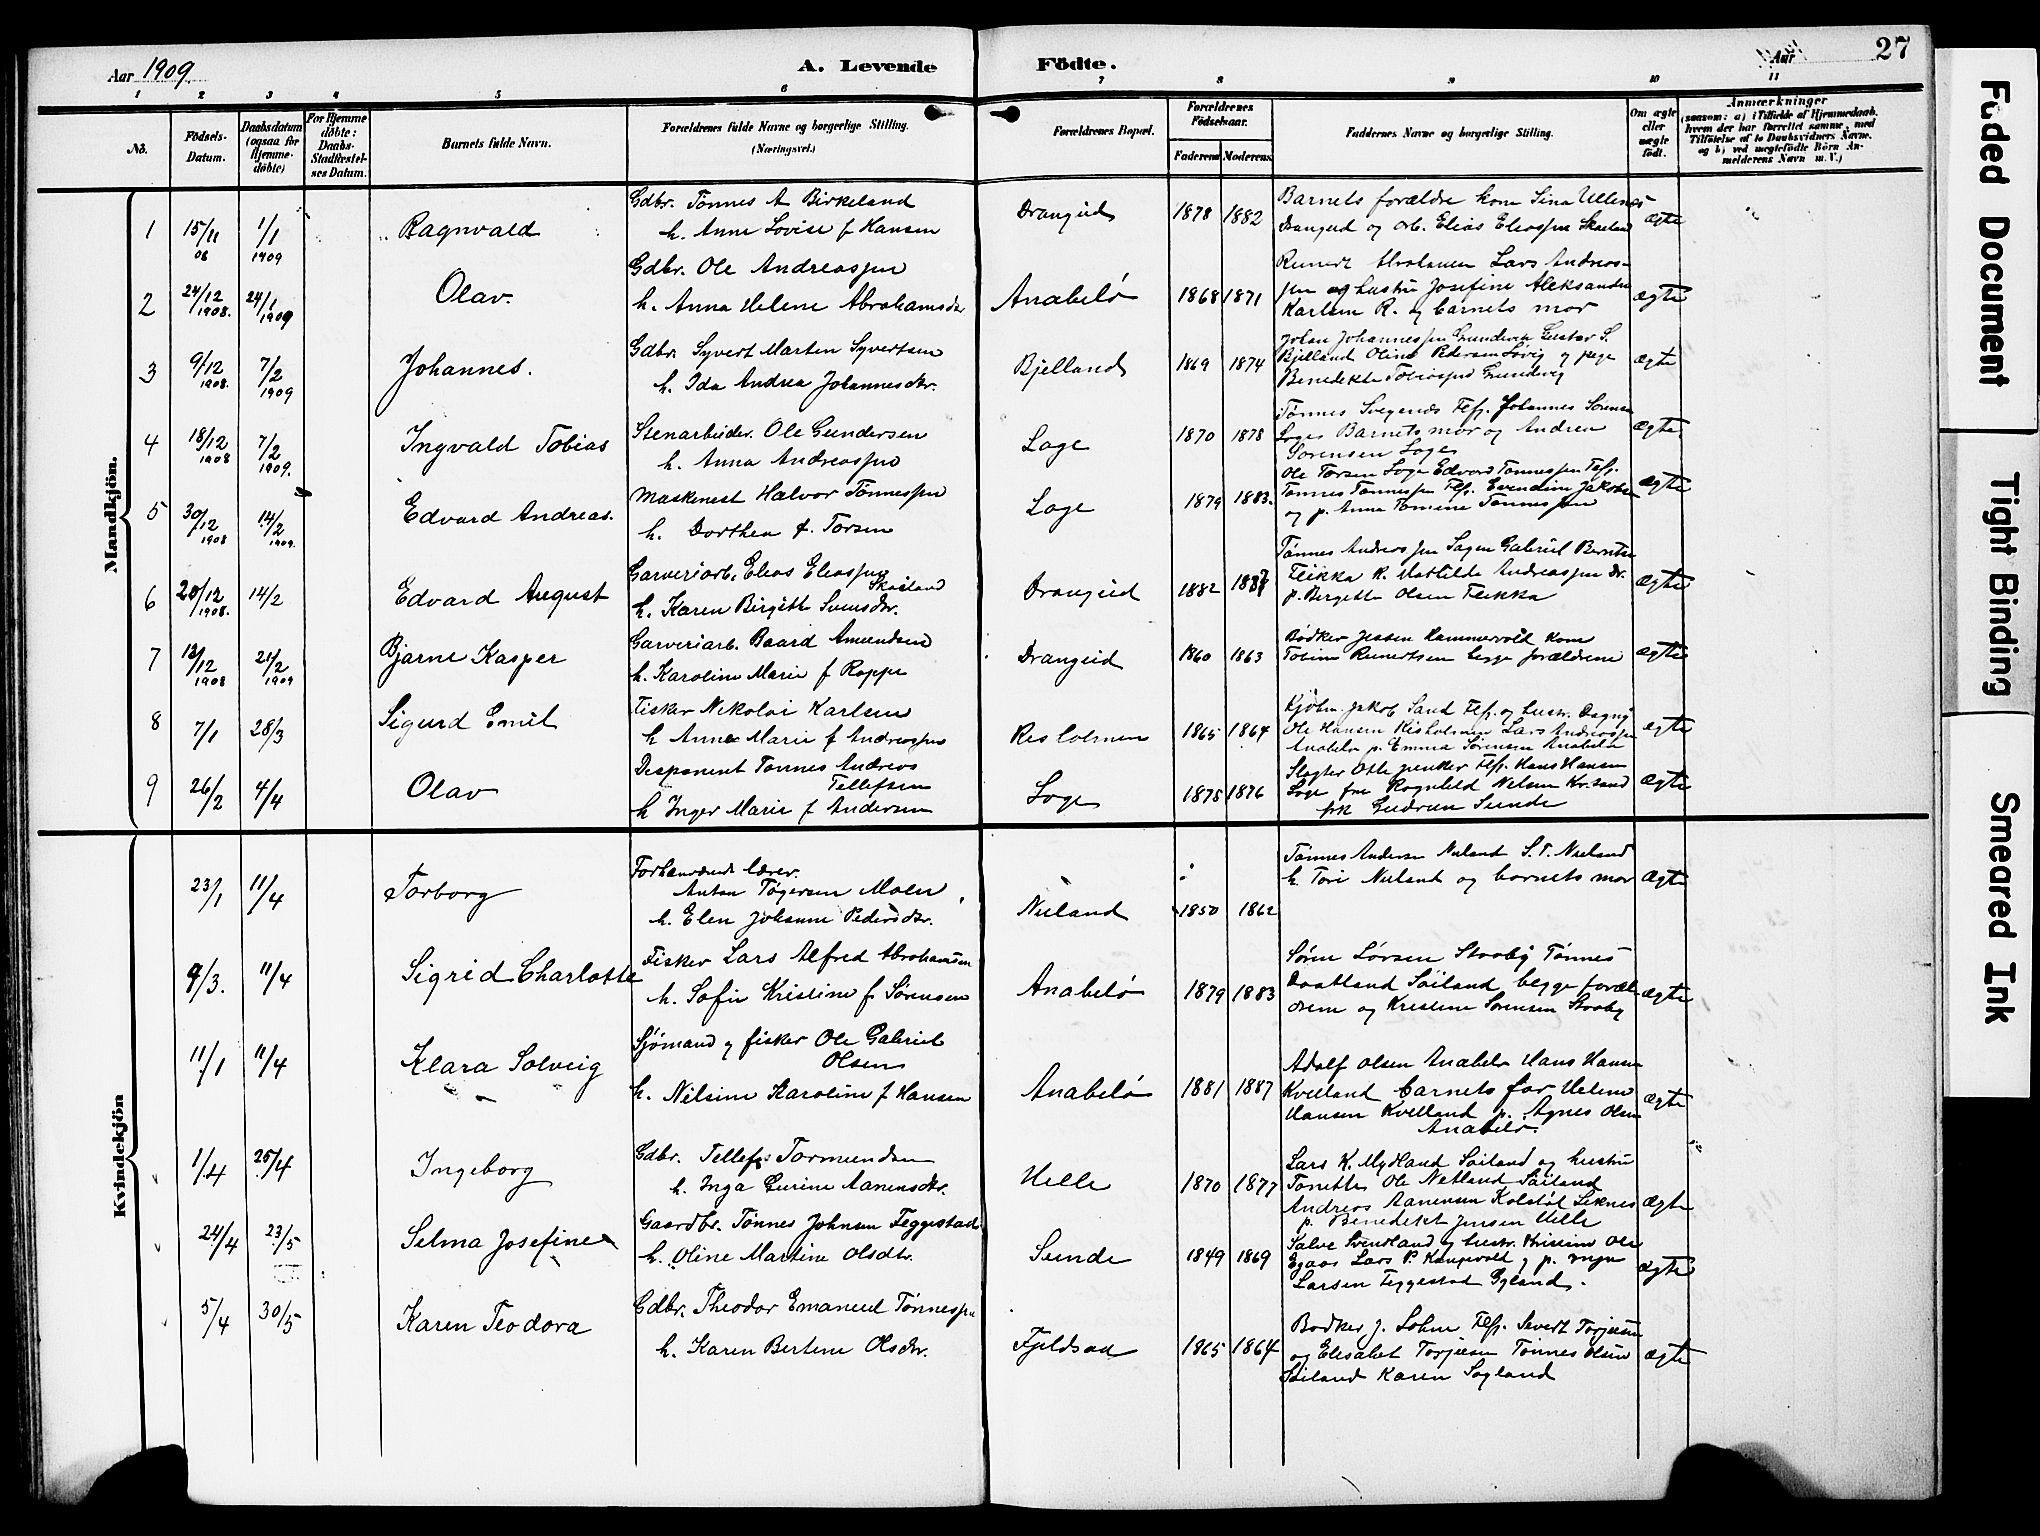 Aar 1909
A. Levende
Födte.
Aar
27
1 2 3 4 5 6 7 8 9 10 11
No.
Födsels-Datum.
Daabsdatum (ogsaa for Hjemme-döbte)
For Hjemme döbte: Daabs-Stadfæstel-ses Datum.
Barnets fulde Navn.
Forældrenes fulde Navne og borgerlige Stilling.
(Næringsvei.)
Forældrenes Bopæl.
Forældrenes Födselsaar.
Faderens
Moderens
Faddernes Navne og borgerlige Stilling.
Om ægte eller uægte födt.
Anmærkninger
(saasom: a) i Tilfælde af Hjemmedaab, hvem der har forrettet samme, med Tilföielse af to Daabsvidners Navne, og b) ved uægtefödte Börn Anmelderens Navn m. V.)
Mandkjön.
1 15/11 08 1/1 1909 Ragnvald
Gdbr. Tønnes A Birkeland
h. Anne Lovise f Hansen
Drangeid 1878 1882
Barnets forældre kone Sina Ullenes
Drangeid og arb. Elias Eliassen Skailand
ægte
2 24/12 1908. 24/1 1909 Olav.
Gdbr. Ole Andreassen
h. Anna Helene Abrahamsdtr
Anabelø 1868 1871
Reinert Abrahamsen Lars Andreas-
sen og hustru Josefine Aleksander
Karlsen R. og barnets mor
ægte
3 9/12 1908. 7/2 1909 Johannes.
Gdbr. Syvert Marten Syvertsen
h. Ida Andrea Johannesdtr.
Bjelland 1869 1874
Johan Johannessen Grundevik Gustav S.
Bjelland Oline Pedersen Løvig og pige
Benedikte Tobiassen Grundvig
ægte
4 18/12 1908 7/2 1909. Ingvald Tobias
Stenarbeider. Ole Gundersen
h. Anna Andreassen
Loge 1870 1878
Tønnes Svegenes Flf. Johannes Sørensen
Loge Barnets mor og Andrea
Sørensen Loge
ægte
5 30/12 1908 14/2 1909. Edvard Andreas.
Maskinest Halvor Tønnessen
h. Dorthea f. Torsen
Loge 1879 1883.
Ole Torsen Loge Edvard Tønnessen Flf.
Tønnes Tønnessen Flf. Evendine Jakobsen
og p. Anna Tomine Tønnessen
ægte
6 20/12 1908. 14/2 Edvard August
Garveriarb. Elias Eliassen
Skailand
h. Karen Birgitte Svensdtr.
Drangeid 1882
Tønnes Andreassen Lagen Gabriel Berntsen
Flikka k. Mathilde Andreassen Dr.
p. Bergette Olsen Flikka
ægte
7 13/12 1908 21/2 1909 Bjarne Kasper
Garveriarb. Baard Amundsen
h. Karoline Marie f Roppe
Drangeid 1860 1863
Bødker Jessen Hammervold kone
Tobine Reinertsen begge forældrene
ægte
8 7/1 28/3 Sigurd Emil
Fisker Nikolai Karlsen
h Anne Marie f Andreassen
Resholmen 1865 1864
Kjøbm. Jakob Sand Flf. og hustr. Dagny
Ole Hansen Resholmen Lars Andreassen
Anabelø p. Emma Sørensen Anabelø
ægte
9 26/2 4/4 Olav
Disponent Tønnes Andreas
Tellefsen
h Inger Marie f Andersen
Loge 1875 1876
Slagter Otto Junker Flf. Hans Hansen
Loge fru Ragnhild Nilsen Kr.sand
frk Gudrun Sunde
ægte
Kvindekjön
23/1 11/4 Torborg
Forhenværende lærer.
Anton Tøgersen Moen
h. Elen Johanne Pedersdtr.
Nuland 1850 1862
Tønnes Andersen Nuland S. T. Nuland
h. Tori Nuland og barnets mor
ægte
9/3. 11/4 Sigrid Charlotte
Fisker Lars Alfred Abrahamsen
h. Sofie Kristine f Sørensen
Anabelø 1879 1883
Søren Larsen Stroby Tønnes
Doatland Søiland begge foræl-
drene og Kristine Sørensen Stroby
ægte
11/1 11/4 Klara Solveig
Sjømand og fisker Ole Gabriel
Olsen
h. Nilsine Karoline f Hansen
Anabelø 1881 1887
Adolf Olsen Anabelø Hans Hansen
Kvelland barnets far Helene
Hansen Kvelland p. Agnes Olsen
Anabelø.
ægte
1/4 25/4 Ingeborg
Gdbr. Tellef Tormundsen
h. Inga Gurine Aanensdtr.
Helle 1870 1877
Lars K. Mydland Søiland og hustru
Tonette Ole Netland Søiland
Andreas Aanensen Kolstøl Liknes
p. Benedikt Jensen Helle
ægte
24/4 23/5 Selma Josefine
Gaardbr. Tønnes Johnsen Feggestad
h. Oline Martine Olsdtr.
Sunde 1849 1869
Salve Svendland og hustr. Kristine Ole
Egaas Lars P. Kongevold og p.
Larsen Feggestad Gyland.
ægte
5/4 30/5 Karen Teodora
Gdbr. Theodor Emanuel Tønnessen
h. Karen Bertine Olsdtr.
Fjeldsaa 1865 1864
Bødker J. Lohne Flf. Severt Torjusen
og Elisabet Torjusen Tønnes Olsen
Søiland Karen Søyland
ægte
Faded Document
Tight Binding
Smeared Ink